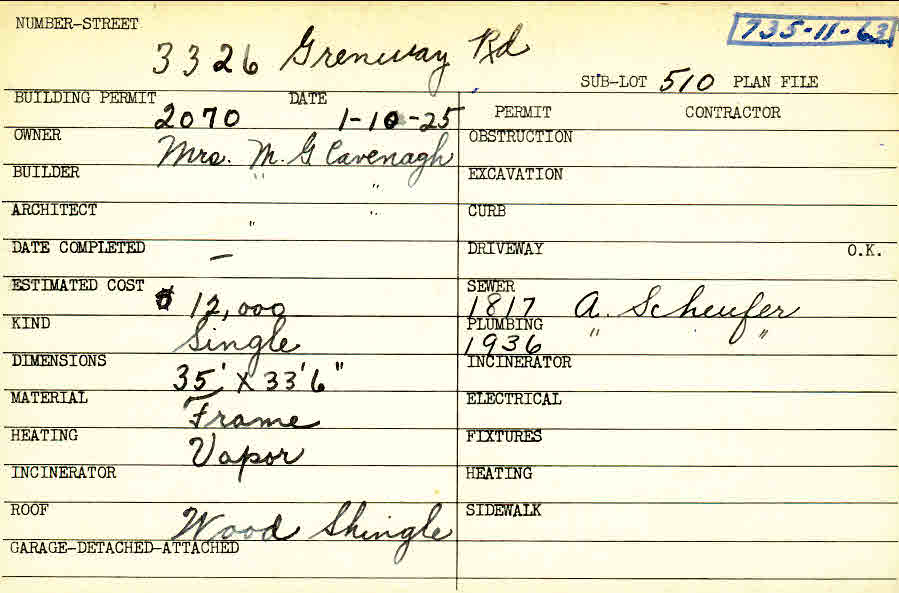 NUMBER-STREET 3326 Grenway Rd
735-11-63
SUB-LOT 510 PLAN FILE
BUILDING PERMIT 2070 DATE 1-10-25
PERMIT CONTRACTOR
OWNER Mrs. M. G Cavenagh
OBSTRUCTION
BUILDER " "
EXCAVATION
ARCHITECT " "
CURB
DATE COMPLETED —
DRIVEWAY O.K.
ESTIMATED COST $12,000
SEWER 1817 A. Scheufer
KIND Single
PLUMBING 1936 " "
DIMENSIONS 35' X 33'6"
INCINERATOR
MATERIAL Frame
ELECTRICAL
HEATING Vapor
FIXTURES
INCINERATOR
HEATING
ROOF Wood Shingle
SIDEWALK
GARAGE-DETACHED-ATTACHED